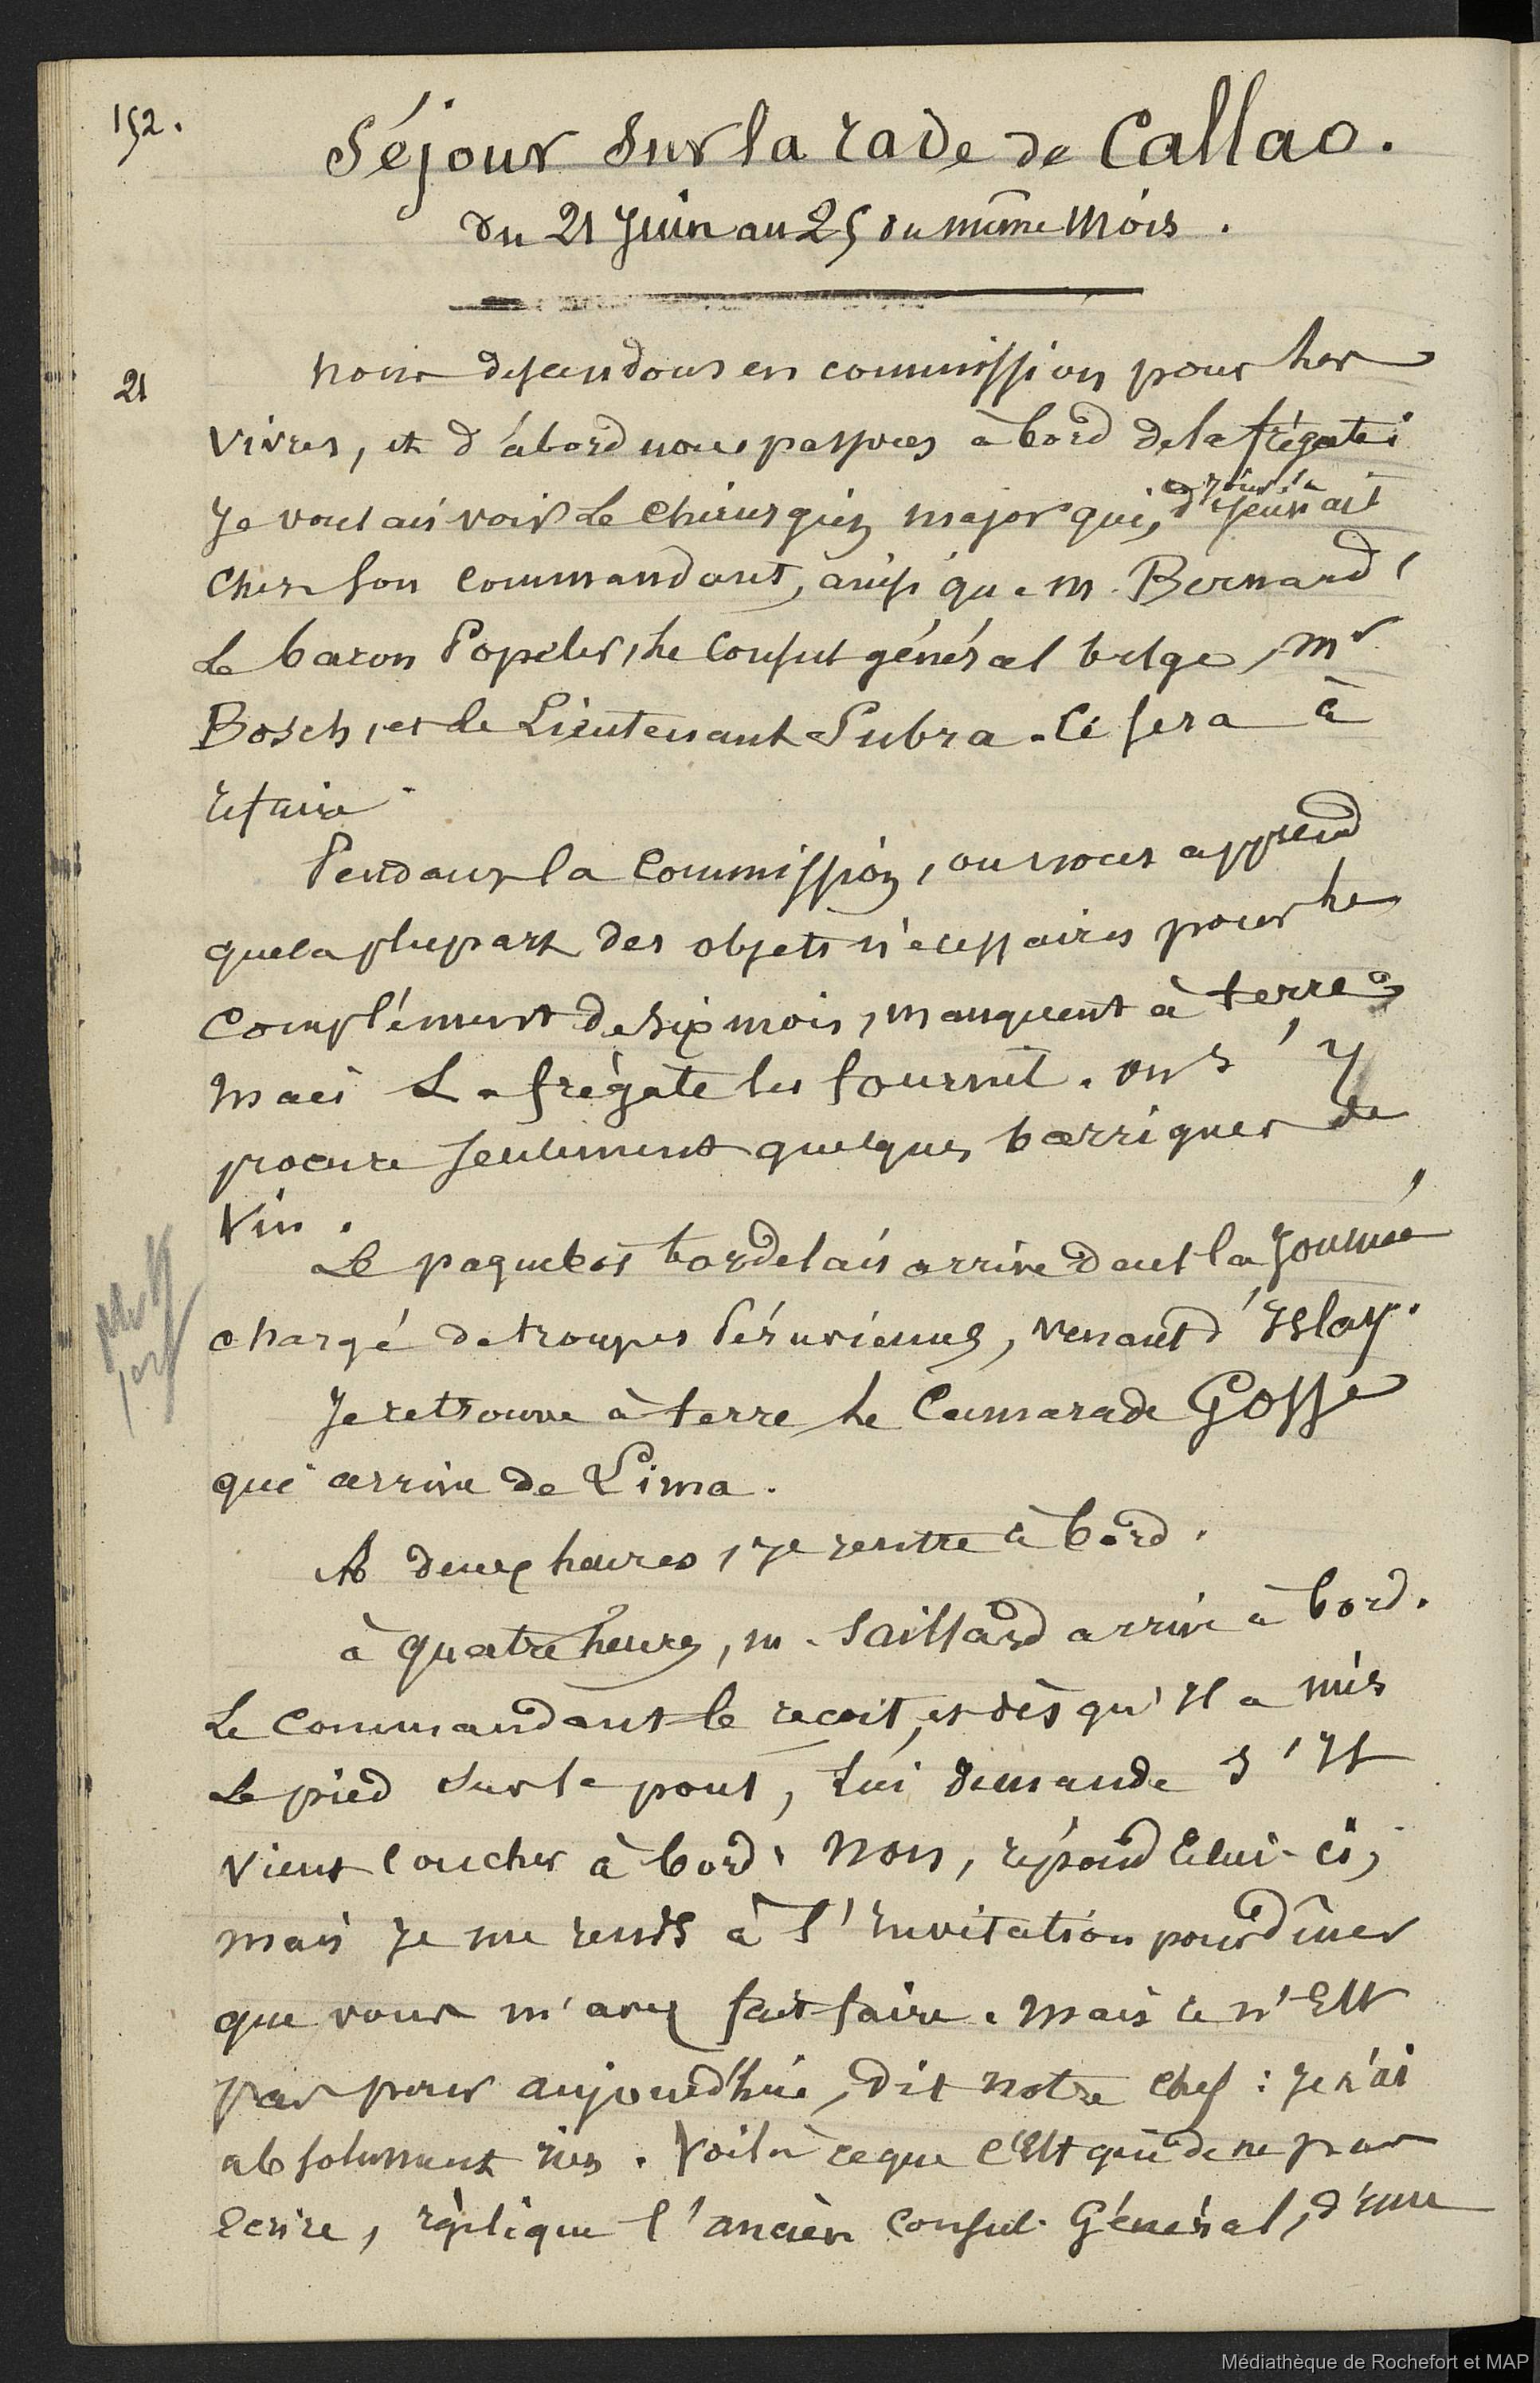 152.
Séjour sur la rade de Callao.
du 21 Juin au 25 du même mois.
21
nous descendons en commission pour les
vivres, et d'abord nous passons à bord de la frégate;
Je voulais voir le chirurgien major qui, ce jour là
déjeunait
chez son commandant, ainsi que m. Bernard,
le baron Popeler, le Consul général belge, Mr
Bosch, et le Lieutenant Pubra. Ce sera à
refaire.
Pendant la Commission, on nous apprend
que la plupart des objets nécessaires pour le
Complément de six mois, manquent à terre;
mais La frégate les fournit. on s'y
procure seulement quelques barriques de
Vin.
Le paquebot bordelais arrive dans la Journée,
chargé de troupes Péruviennes, venant d'Islay.
Je retrouve à terre le Camarade Gossé
qui arrive de Lima.
A deux heures, je rentre à bord.
à quatre heures, m. Saillard arrive à bord.
Le Commandant le recoit, et dès qu'il a mis
Le pied sur le pont, lui demande s'il
vient coucher à bord. Non, répond celui-ci,
mais je me rends à l'invitation pour dîner
que vous m'avez fait faire. Mais ce n'est
pas pour aujourd'hui, dit notre chef: je n'ai
absolument rien. Voilà ce que c'est que de ne pas
Ecrire, réplique l'ancien Consul Général, d'une
Médiathèque de Rochefort et MAP